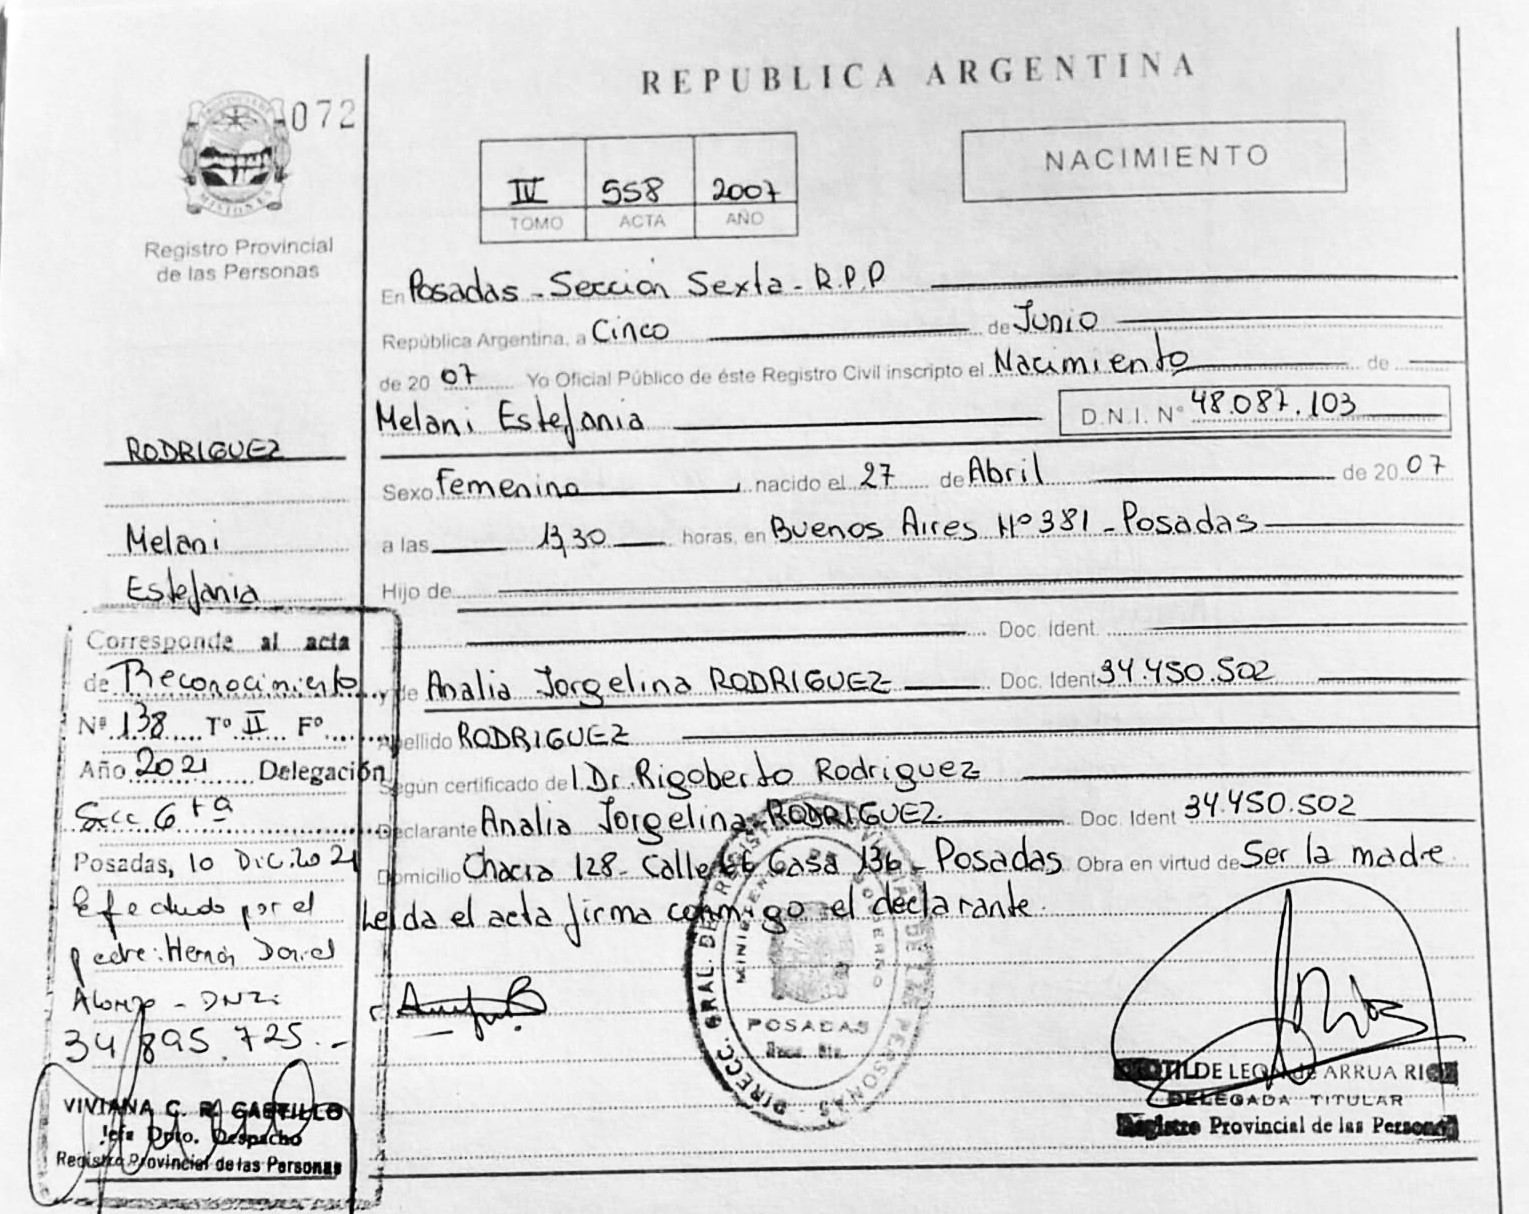 REPUBLICA ARGENTINA
072
MISIONES
Registro Provincial
de las Personas
NACIMIENTO
IV 558 2007
TOMO ACTA AÑO
En Posadas - Sección Sexta - R.P.P
República Argentina, a Cinco de Junio
de 20 07 Yo Oficial Público de éste Registro Civil inscripto el Nacimiento de
Melani Estefania D.N.I. Nº 48.087.103
RODRIGUEZ
Melani
Estefania
Sexo Femenino nacido el 27 de Abril de 20 07
a las 13,30 horas, en Buenos Aires Nº 381 - Posadas
Hijo de
Doc. Ident.
y de Analia Jorgelina RODRIGUEZ Doc. Ident 34.450.502
Apellido RODRIGUEZ
Según certificado de l Dr. Rigoberto Rodriguez
Declarante Analia Jorgelina RODRIGUEZ Doc. Ident 34.450.502
Domicilio Chacra 128 - Calle Casa 136 - Posadas Obra en virtud de Ser la madre
Leida el acta firma conmigo el declarante.
Corresponde al acta
de Reconocimiento
Nº 138 Tº II Fº
Año 2021 Delegación
Secc 6ta
Posadas, 10 Dic. 2021
Efectuado por el
padre: Hernán Daniel
Alonzo - DNI:
34.895.725.-
VIVIANA C. R. CASTILLO
Jefa Dpto. Despacho
Registro Provincial de las Personas
DIRECC. GRAL. DE REGISTRO PROVINCIAL DE LAS PERSONAS
MINISTERIO DE GOBIERNO
POSADAS
CLOTILDE LEON de ARRUA
DELEGADA TITULAR
Registro Provincial de las Personas